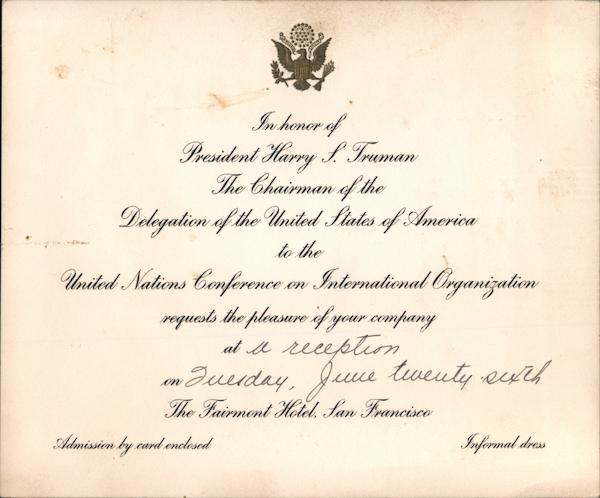 In honor of
President Harry S. Truman
The Chairman of the
Delegation of the United States of America
to the
United Nations Conference on International Organization
requests the pleasure of your company
at a reception
on Tuesday, June twenty-sixth
The Fairmont Hotel, San Francisco
Admission by card enclosed
Informal dress